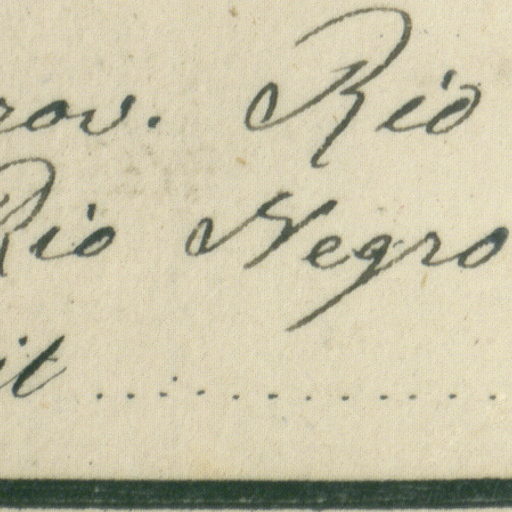 rov. Rio
Rio Negro
it ..............